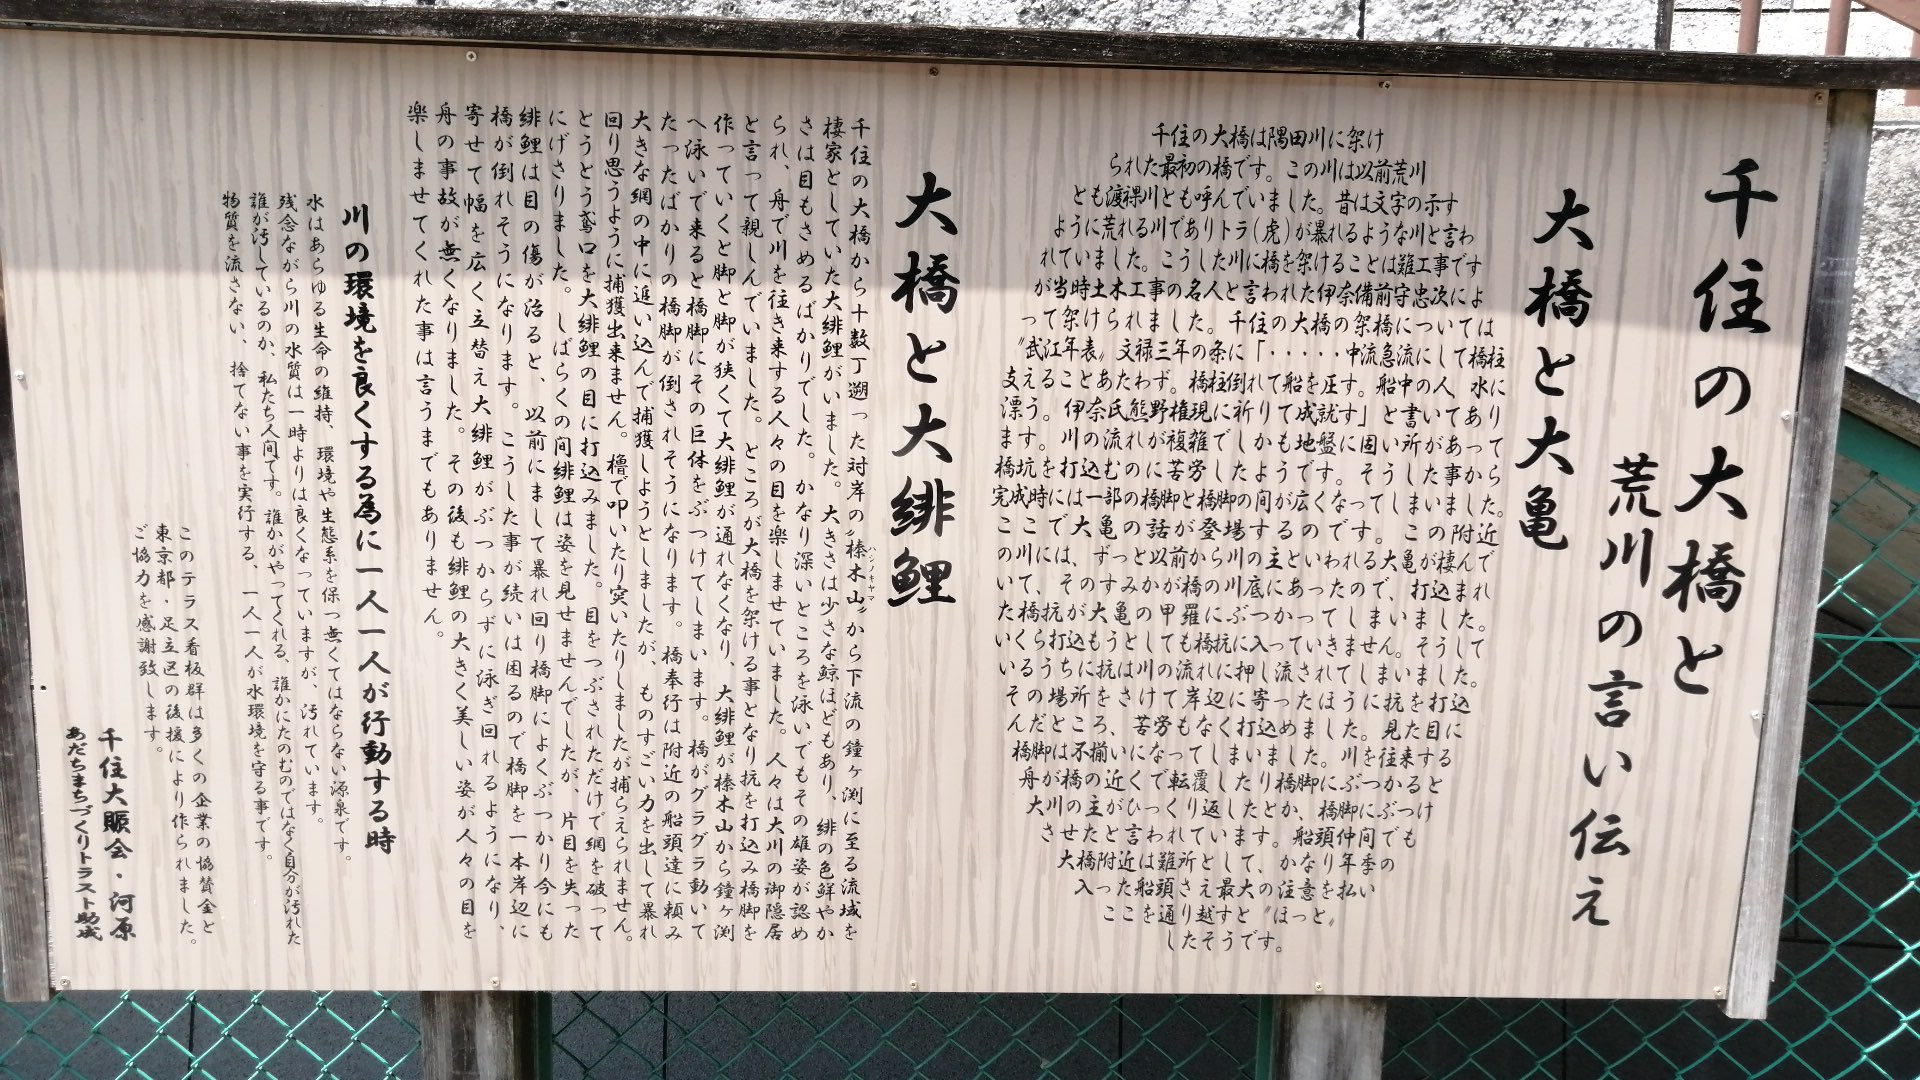 千住の大橋と
荒川の言い伝え
大橋と大亀
千住の大橋は隅田川に架け
られた最初の橋です。この川は以前荒川
とも渡裸川とも呼んでいました。昔は文字の示す
ように荒れる川でありトラ(虎)が暴れるような川と言わ
れていました。こうした川に橋を架けることは難工事です
が当時土木工事の名人と言われた伊奈備前守忠次によ
って架けられました。千住の大橋の架橋については
〝武江年表〟文禄三年の条に「・・・・・中流急流にして橋柱
支えることあたわず。橋柱倒れて船を圧す。船中の人 水に
漂う。伊奈氏熊野権現に祈りて成就す」と書いてあり
ます。川の流れが複雑でしかも地盤に固い所があって
橋坑を打込むのに苦労したようです。そうした事から
完成時には一部の橋脚と橋脚の間が広くなってしまいました。
ここで大亀の話が登場するのです。この附近
の川には、ずっと以前から川の主といわれる大亀が棲んで
いて、そのすみかが橋の川底にあったので、打込まれ
た橋抗が大亀の甲羅にぶつかってしまいました。
いくら打込もうとしても橋抗に入っていきません。そうして
いるうちに抗は川の流れに押し流されてしまいました。
その場所をさけて岸辺に寄ったほうに抗を打込
んだところ、苦労もなく打込めました。見た目に
橋脚は不揃いになってしまいました。川を往来する
舟が橋の近くで転覆したり橋脚にぶつかると
大川の主がひっくり返したとか、橋脚にぶつけ
させたと言われています。船頭仲間でも
大橋附近は難所として、かなり年季の
入った船頭さえ最大の注意を払い
ここを通り越すと〝ほっと〟
したそうです。
大橋と大緋鯉
千住の大橋から十数丁遡った対岸の〝榛木山〟から下流の鐘ヶ渕に至る流域を
ハンノキヤマ
棲家としていた大緋鯉がいました。大きさは少さな鯨ほどもあり、緋の色鮮やか
さは目もさめるばかりでした。かなり深いところを泳いでもその雄姿が認め
られ、舟で川を往き来する人々の目を楽しませていました。人々は大川の御隠居
と言って親しんでいました。ところが大橋を架ける事となり抗を打込み橋脚を
作っていくと脚と脚が狭くて大緋鯉が通れなくなり、大緋鯉が榛木山から鐘ヶ渕
へ泳いで来ると橋脚にその巨体をぶつけてしまいます。橋がグラグラ動いて
たったばかりの橋脚が倒されそうになります。橋奉行は附近の船頭達に頼み
大きな網の中に追い込んで捕獲しようとしましたが、ものすごい力を出して暴れ
回り思うように捕獲出来ません。櫓で叩いたり突いたりしましたが捕らえられません。
とうとう鳶口を大緋鯉の目に打込みました。目をつぶされただけで網を破って
にげさりました。しばらくの間緋鯉は姿を見せませんでしたが、片目を失った
緋鯉は目の傷が治ると、以前にまして暴れ回り橋脚によくぶつかり今にも
橋が倒れそうになります。こうした事が続いは困るので橋脚を一本岸辺に
寄せて幅を広く立替え大緋鯉がぶつからずに泳ぎ回れるようになり、
舟の事故が無くなりました。その後も緋鯉の大きく美しい姿が人々の目を
楽しませてくれた事は言うまでもありません。
川の環境を良くする為に一人一人が行動する時
水はあらゆる生命の維持、環境や生態系を保つ無くてはならない源泉です。
残念ながら川の水質は一時よりは良くなっていますが、汚れています。
誰が汚しているのか、私たち人間です。誰かがやってくれる、誰かにたのむのではなく自分が汚れた
物質を流さない、捨てない事を実行する、一人一人が水環境を守る事です。
このテラス看板群は多くの企業の協賛金と
東京都・足立区の後援により作られました。
ご協力を感謝致します。
千住大賑会・河原
あだちまちづくりトラスト助成